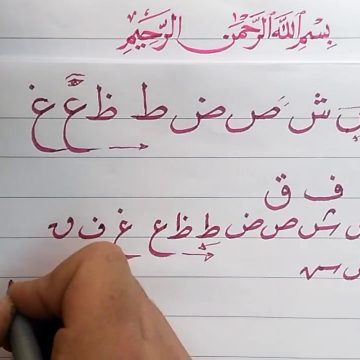 بِسْمِ اللَّهِ الرَّحْمَٰنِ الرَّحِيمِ
ش ص ض ط ظ ع غ
ف ق
ش ص ض ط ظ ع غ ف ق
س